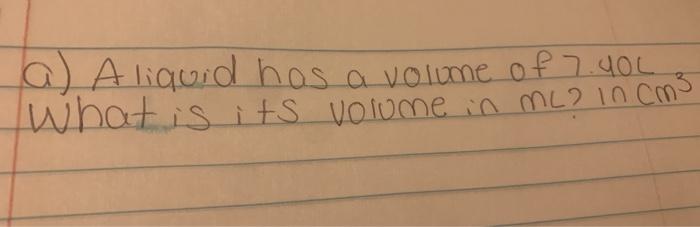 a) A liquid has a volume of 7.40L
What is its volume in mL? in cm³